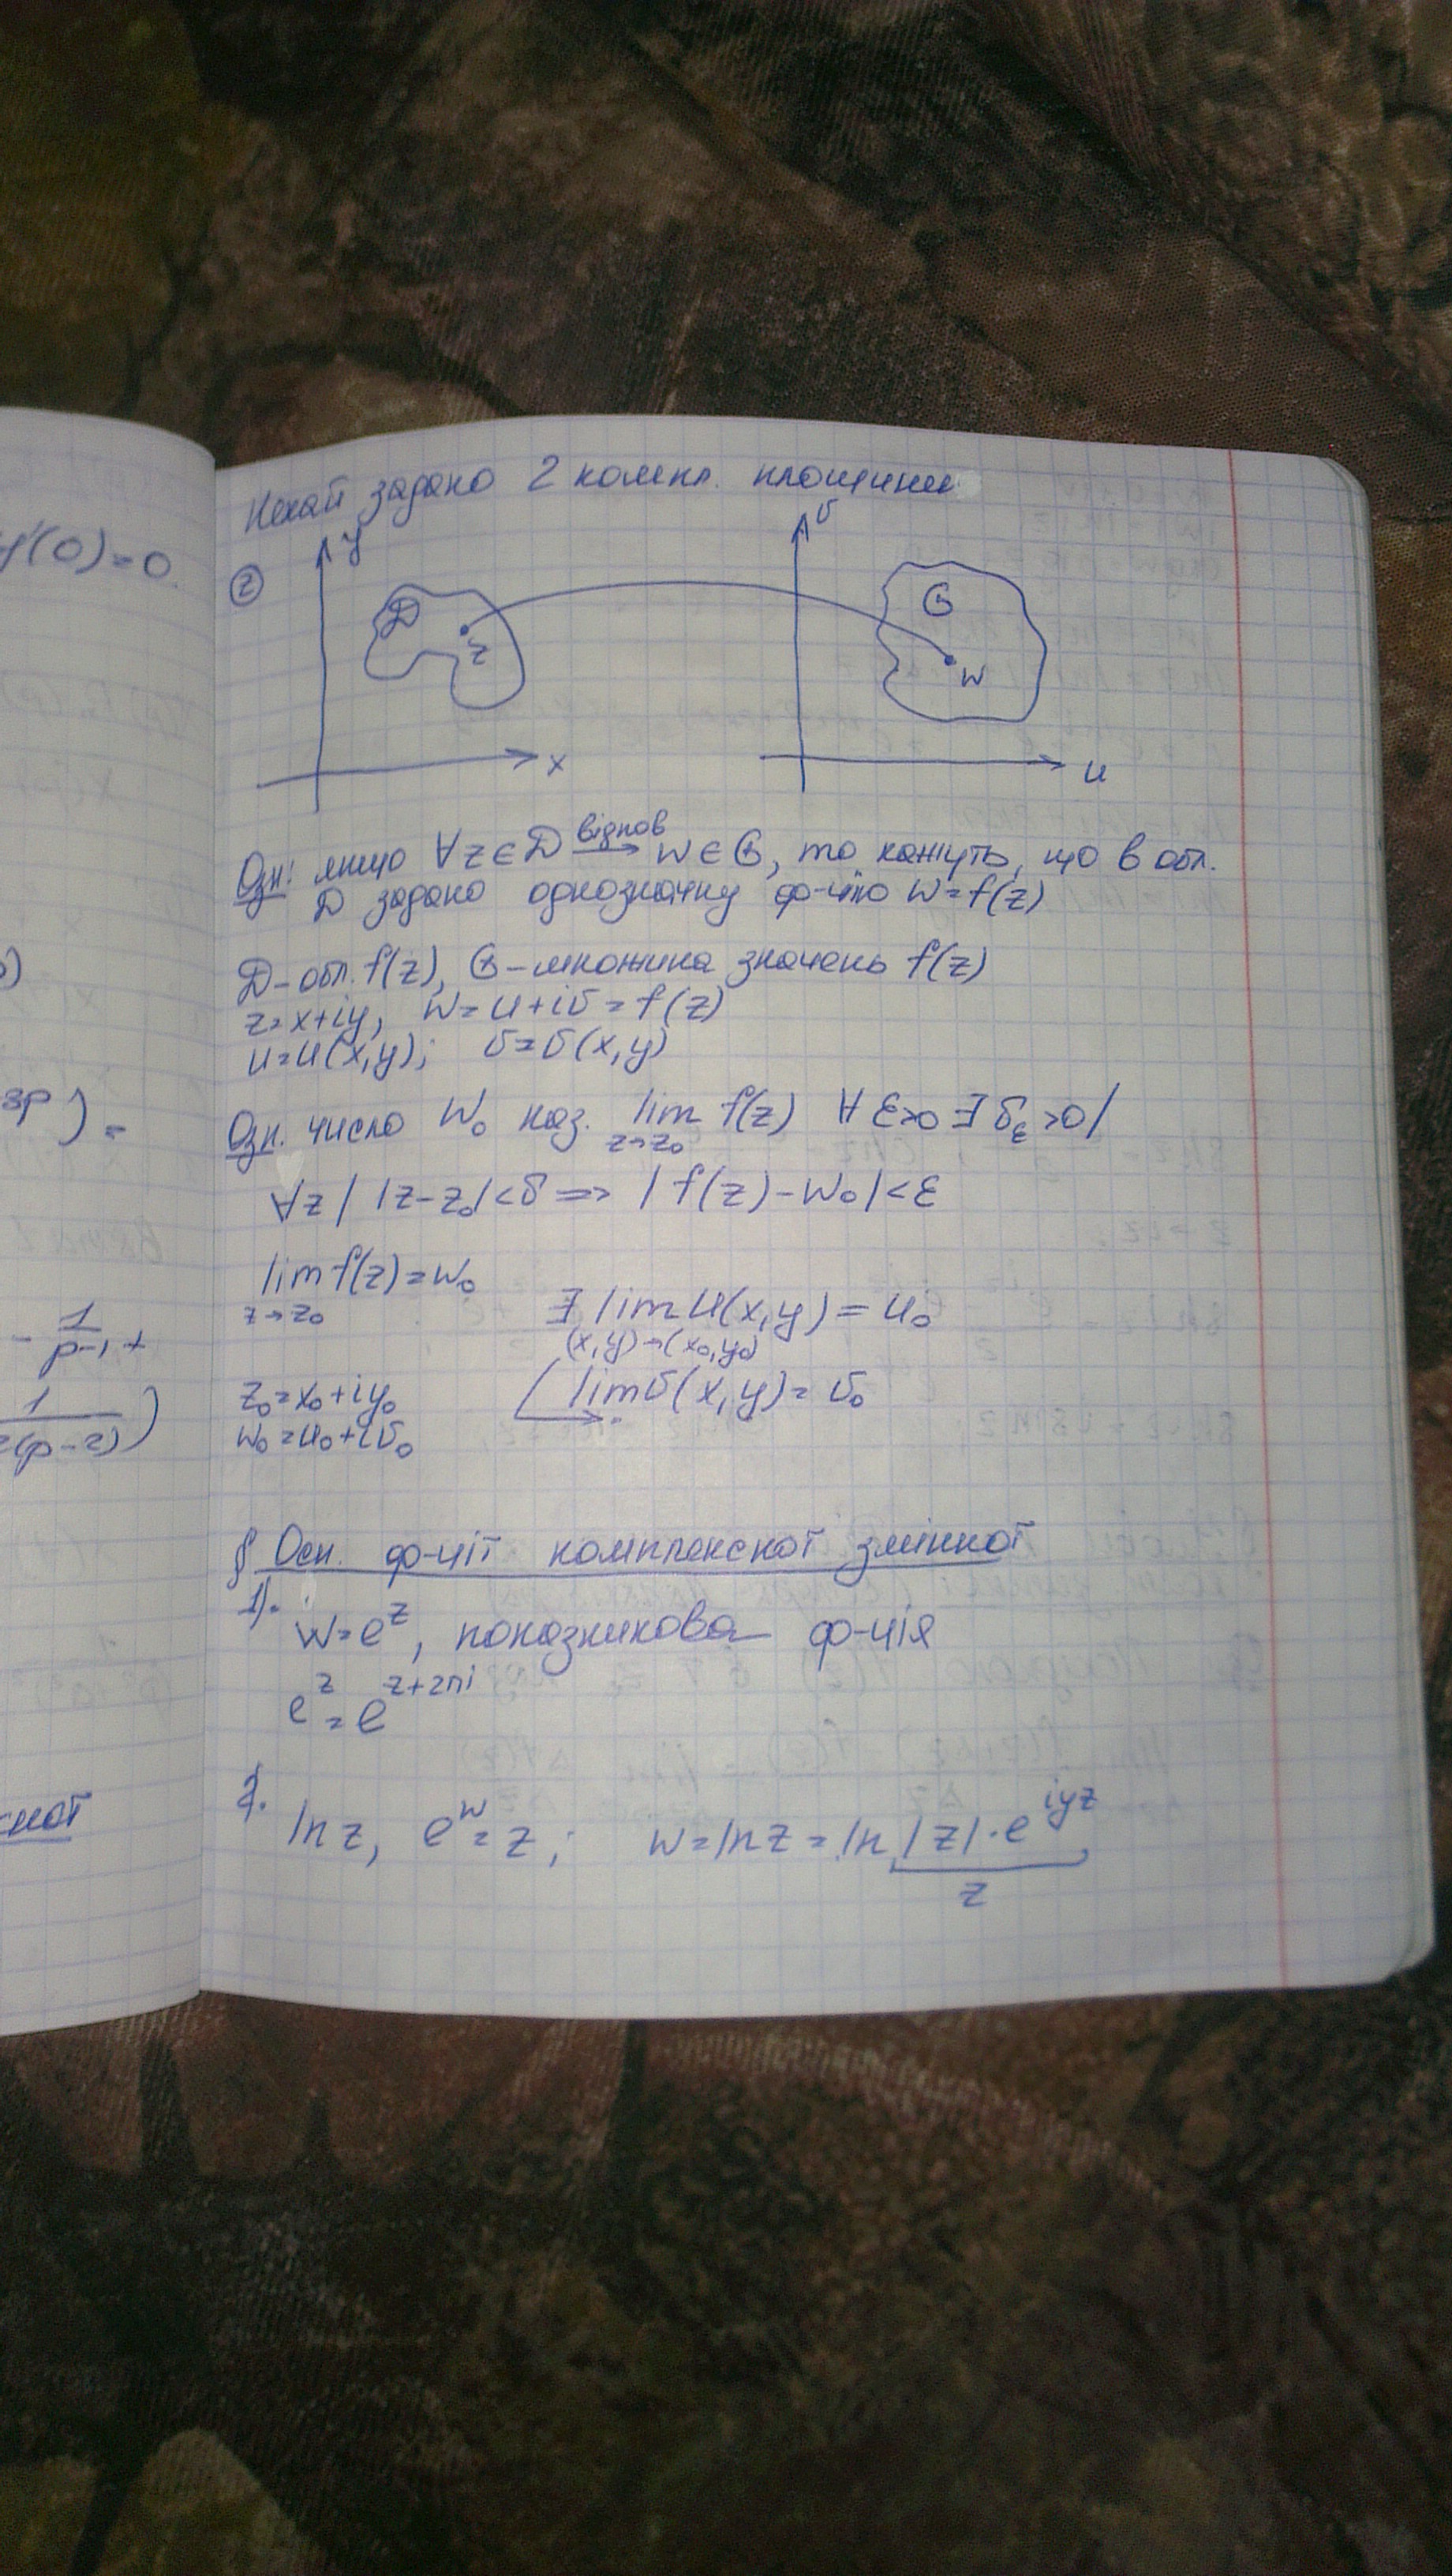 Нехай задано 2 компл. площини
z y D z x
v G w u
Озн: якщо ∀z∈D →відпов w∈G, то кажуть, що в обл.
D задано однозначну ф-цію w=f(z)
D-обл. f(z), G-множина значень f(z)
z=x+iy, w=u+iv=f(z)
u=u(x,y); v=v(x,y)
Озн. число w₀ наз. lim f(z) ∀ε>0 ∃δ_ε>0/
z→z₀
∀z/ |z-z₀|<δ => |f(z)-w₀|<ε
lim f(z)=w₀
z→z₀
∃ lim u(x,y)=u₀
(x,y)→(x₀,y₀)
lim v(x,y)=v₀
z₀=x₀+iy₀
w₀=u₀+iv₀
§ Осн. ф-ції комплексної змінної
1).
w=e^z, показникова ф-ція
e^z=e^{z+2πi}
2.
ln z, e^w=z; w=ln z=ln |z|·e^{iyz}
z
y'(0)=0
зр)=
- 1/(p-1) +